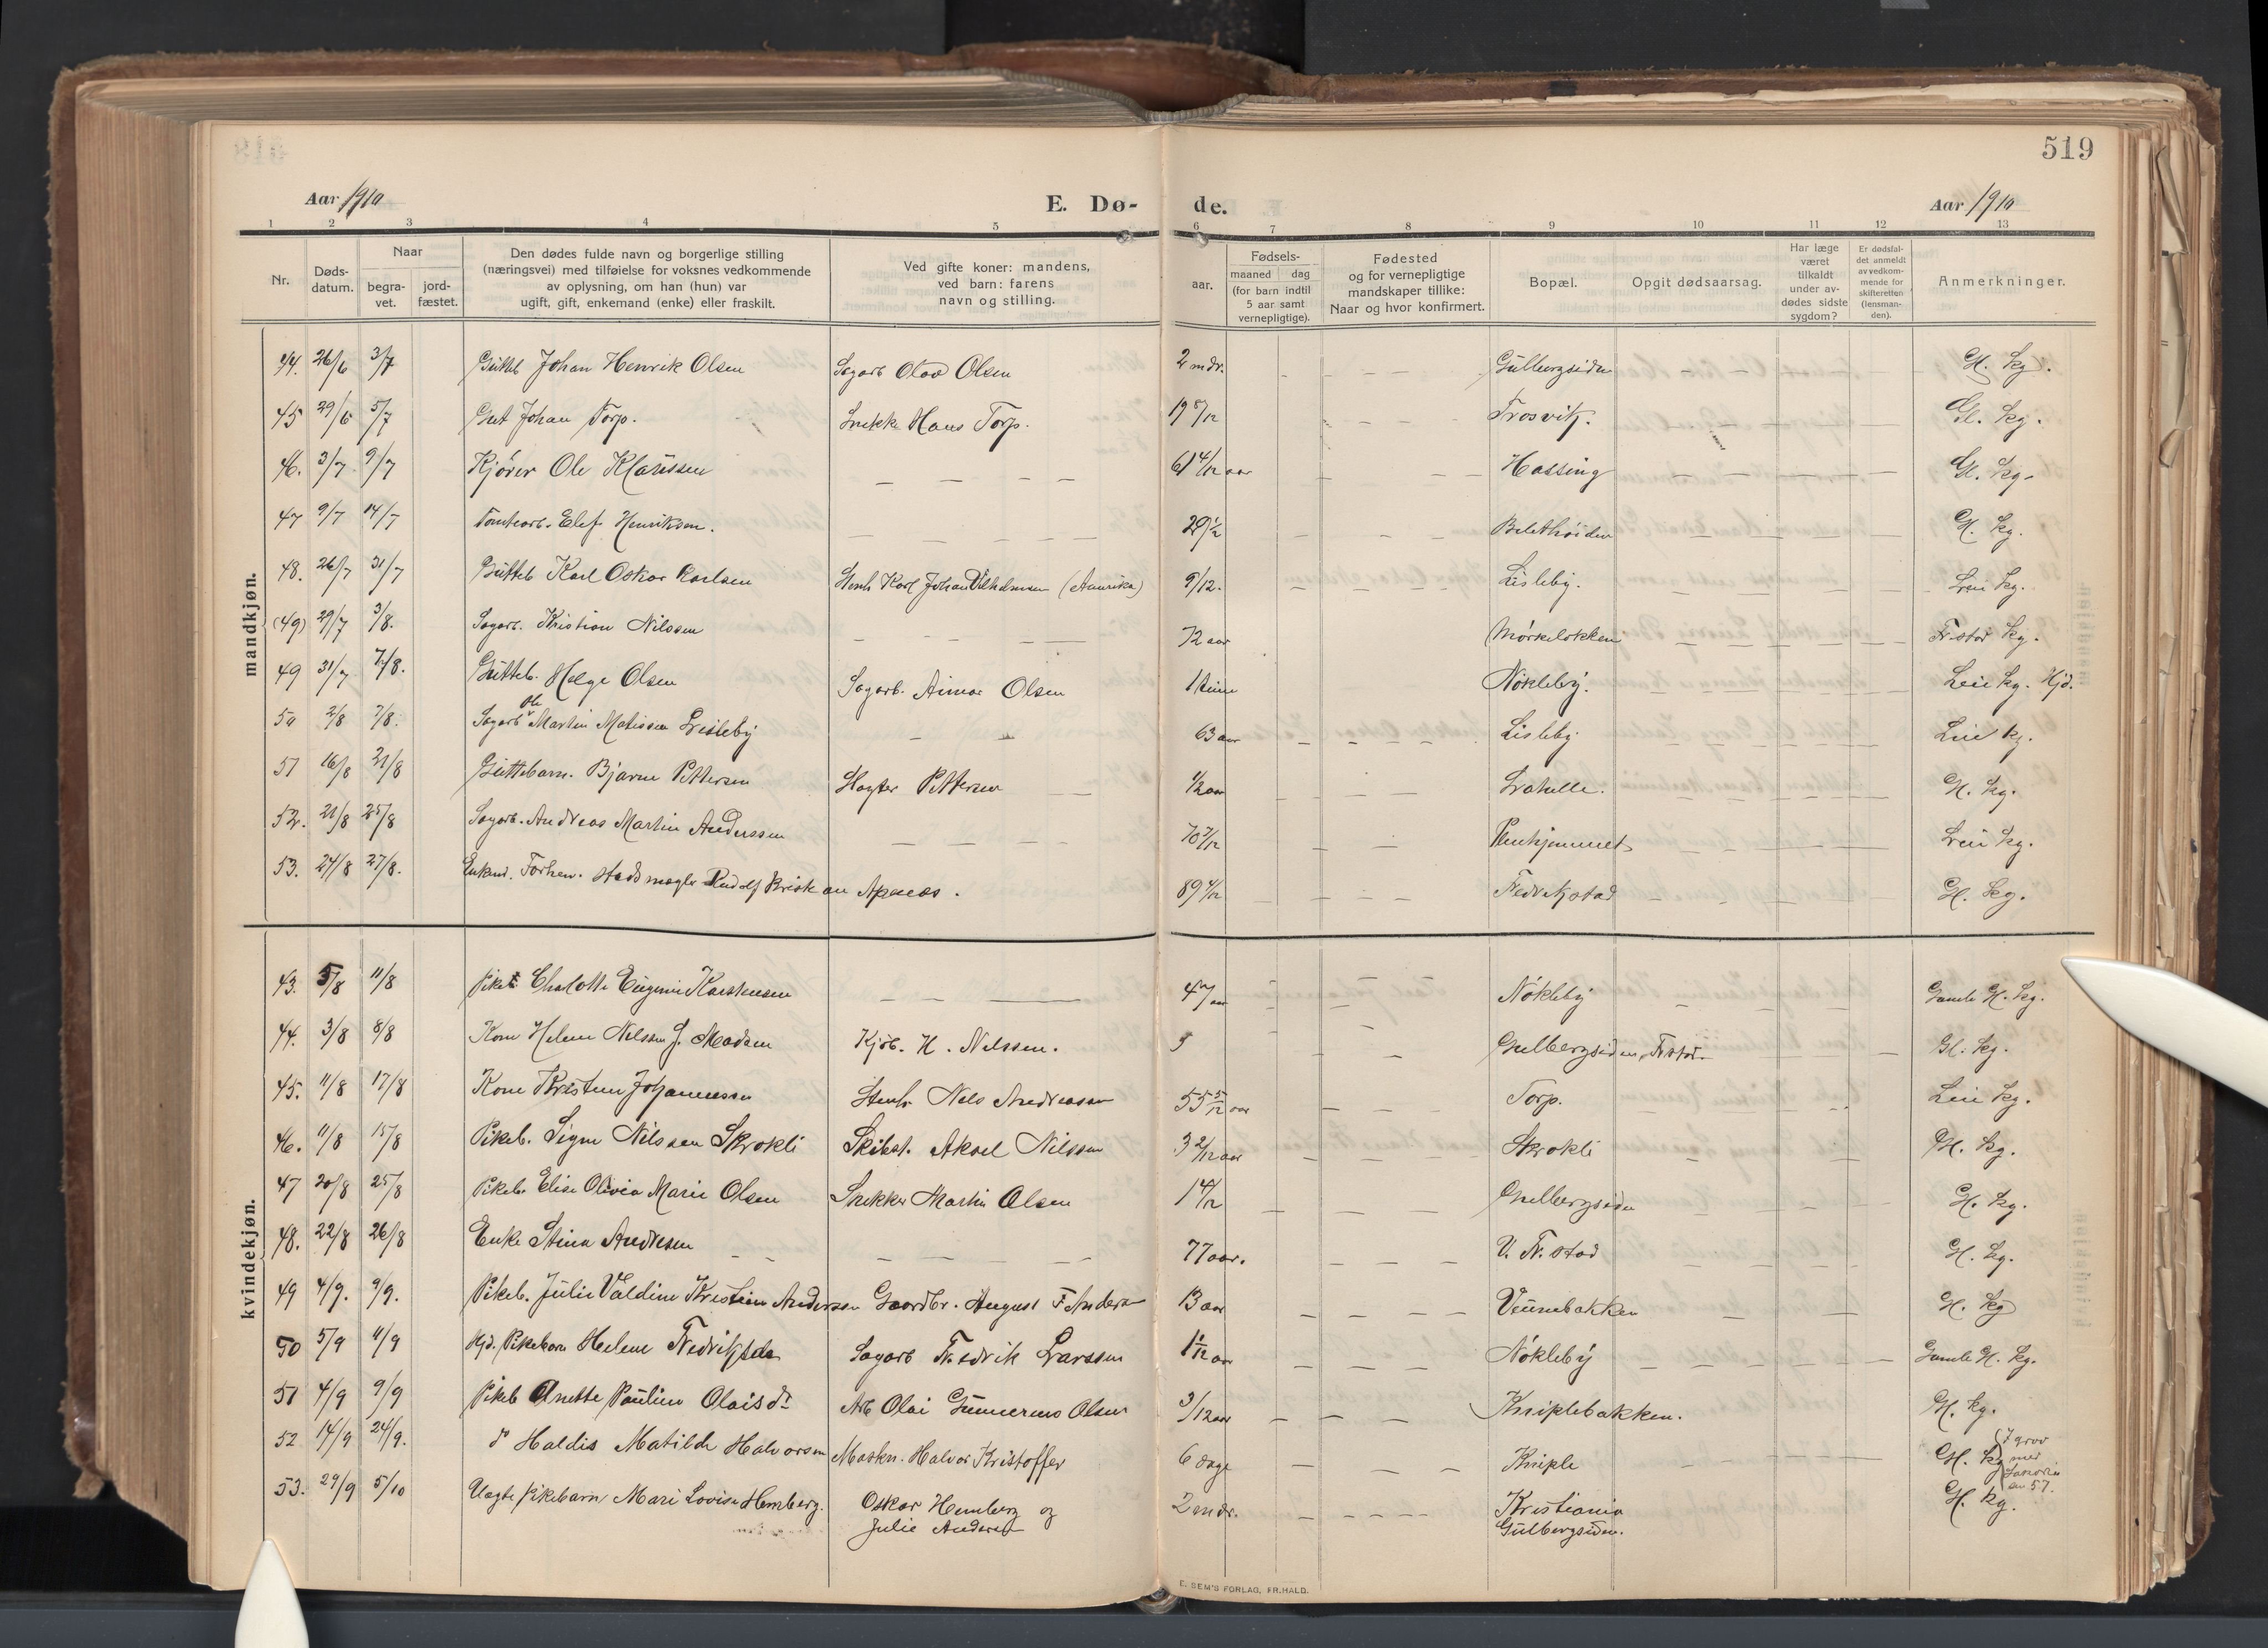 519
Aar 1910 E. Dø- de. Aar 1910
1 2 3 4 5 6 7 8 9 10 11 12 13
Nr.
Døds-
datum.
Naar
begra-
vet.
jord-
fæstet.
Den dødes fulde navn og borgerlige stilling
(næringsvei) med tilføielse for voksnes vedkommende
av oplysning, om han (hun) var
ugift, gift, enkemand (enke) eller fraskilt.
Ved gifte koner: mandens,
ved barn: farens
navn og stilling.
aar.
Fødsels-
maaned dag
(for barn indtil
5 aar samt
vernepligtige).
Fødested
og for vernepligtige
mandskaper tillike:
Naar og hvor konfirmert.
Bopæl.
Opgit dødsaarsag.
Har læge
været
tilkaldt
under av-
dødes sidste
sygdom?
Er dødsfal-
det anmeldt
av vedkom-
mende for
skifteretten
(lensman-
den).
Anmerkninger.
mandkjøn.
44. 26/6 3/7 Gutteb Johan Henrik Olsen Sagarb Olav Olsen 2 mdr. Gulbergsiden Gl. kg.
45 29/6 5/7 Gut Johan Torp. Snekk Hans Torp. 19 8/12 Trosvik. Gl. kg.
46. 3/7 9/7 Kjører Ole Klaussen 61 4/12 aar Hassing Gl. kg.
47 9/7 14/7 Tomtearb. Elef Henriksen. 29 1/2 Gl. kg.
48. 26/7 31/7 Gutteb Karl Oskar Karlsen Stenh Karl Johan Vilhelmsen (Amerika) 9/12. Lisleby. Leie kg.
(49) 29/7 3/8. Sagarb. Kristian Nilssen 72 aar Mørkeløkken Fr.stad kg.
49 31/7 7/8. Gutteb. Helge Olsen Sagarb. Aimar Olsen 1 time Nøkleby. Leie kg. Hjd.
50 2/8 7/8. Sagarb Ole Martin Matissen Lisleby 63 aar Lisleby Leie kg.
51 16/8 21/8 Guttebarn. Bjarne Pettersen Slagter Pettersen 1/2 aar Gl. kg.
52. 21/8 25/8 Sagarb. Andreas Martin Anderssen 70 7/12 Pleiehjemmet Leie kg.
53. 24/8 27/8. Enkem. Forhen. stadsmægler Rudolf Kristian Apenes. 89 4/12 Fredrikstad Gl. kg.
kvindekjøn.
43. 5/8 11/8 Pike Charlotte Eugenie Karstensen 47 aar Nøkleby Gamle Gl. kg.
44. 3/8 8/8 Kone Helene Nilssen f. Madsen Kjøb. H. Nilssen. Gulbergsiden, Fr.stad. Gl. kg.
45. 11/8 17/8 Kone Kristine Johannessen Stenh Nils Andreassen 55 5/12 aar Torp. Leie kg.
46. 11/8 15/8 Pikeb. Signe Nilssen Skrokli Skibst. Aksel Nilssen 3 2/12 aar Skrokli Gl. kg.
47 20/8 25/8 Pikeb. Elise Olivia Marie Olsen Snekker Martin Olsen 1 4/12 Gulbergsiden Gl. kg.
48. 22/8 26/8 Enke Stina Andresen 77 aar. V. Fr.stad Gl. kg.
49 4/9. 9/9. Pikeb. Julie Valdine Kristine Anderssen Gaardbr. August F. Anders 13 aar Veumbakken Gl. kg
50 5/9 11/9 Hjd. Pikebarn Helene Fredriksdr Sagarb Fredrik Larssen 1 1/12 aar Nøkleby Gamle Gl. kg.
51 4/9 9/9 Pikeb Anette Pauline Olaisdr Arb Olai Gunnerius Olsen 3/12 aar Kniplebakken. Gl. kg.
52 14/9 24/9. do Haldis Matilde Halvorsen Maskn. Halvor Kristoffer 6 dage Kniple Gl. kg. (I grav med
53. 29/9 5/10 Uegte Pikebarn Mari Lovise Hemberg. Oskar Hemberg og 2 mdr. Kristiania Gl. kg.
Julie Anders Gulbergsiden.
E. SEM'S FORLAG, FR.HALD.